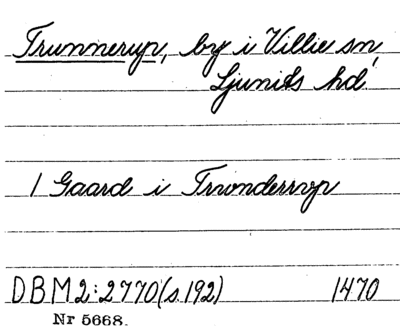 Trunnerup, by i Villie sn,
Ljunits hd.
1 Gaard i Trwonderrvp
DBM2:2770(s.192) 1470
Nr 5668.